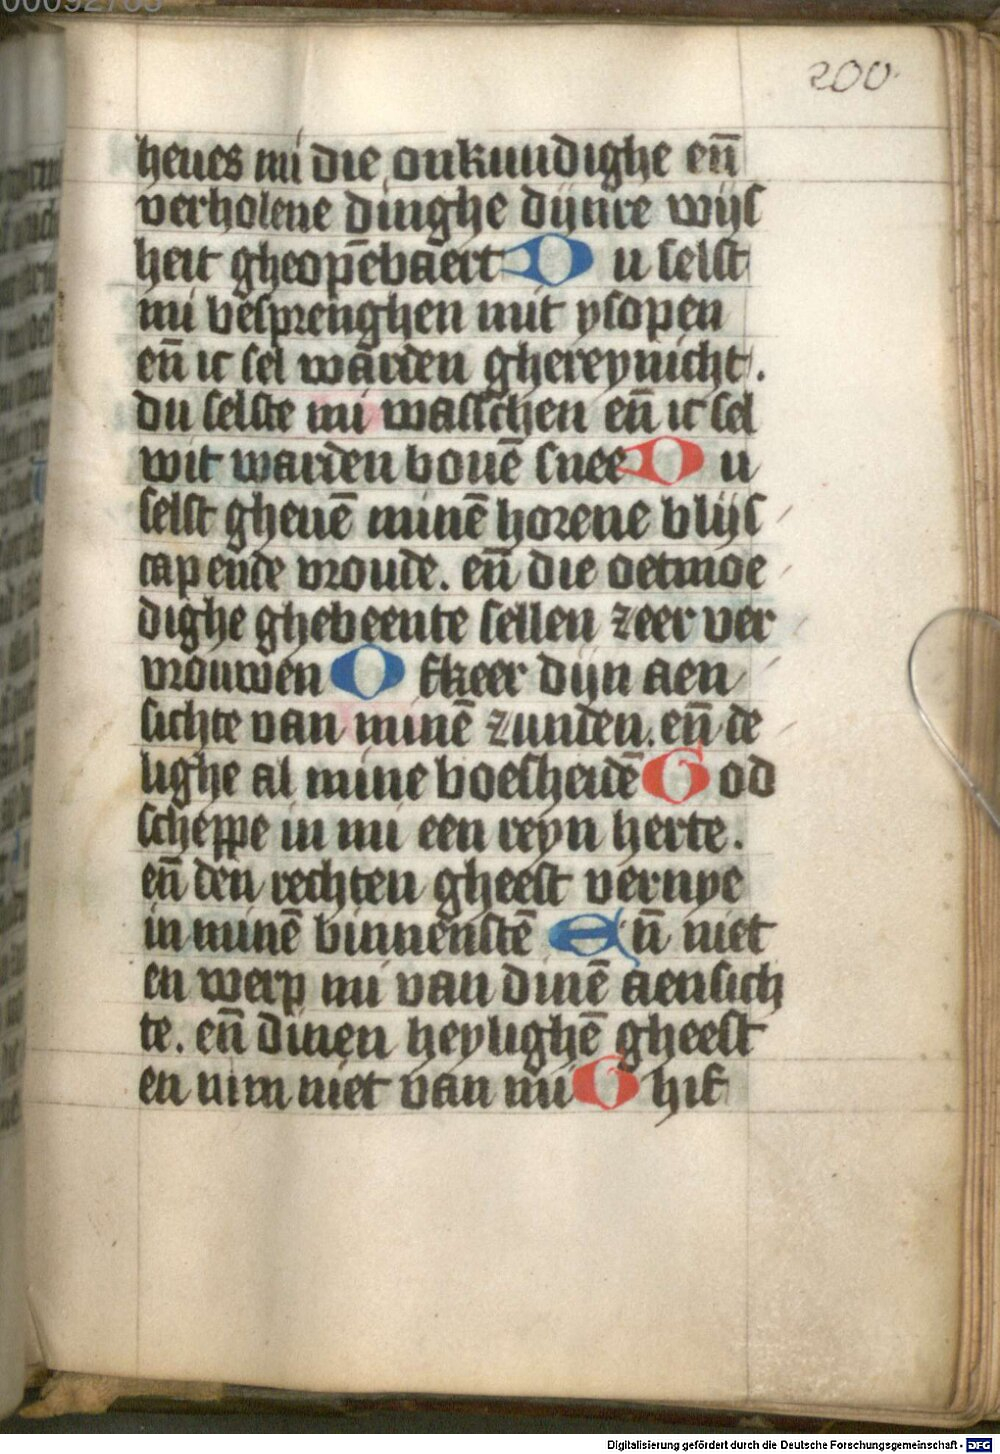 00092785
200
heues mi die onkundighe en̄
verholene dinghe dijnre wijs
heit gheopēbaert Du selst
mi besprenghen mit ysopen
en̄ ic sel warden ghereynicht.
du selste mi wasschen en̄ ic sel
wit warden bouē snee Du
selst gheuē minē horene blijs
cap ende vroude. en̄ die oetmoe
dighe ghebeente sellen zeer ver
vrouwen Of keer dijn aen
sichte van minē zunden. en̄ de
lighe al mine boesheidē God
scheppe in mi een reyn herte.
en̄ den rechten gheest vernye
in minē binnenstē En̄ niet
en werp mi van dinē aensich
te. en̄ dinen heylighē gheest
en nim niet van mi Ghif
Digitalisierung gefördert durch die Deutsche Forschungsgemeinschaft - DFG